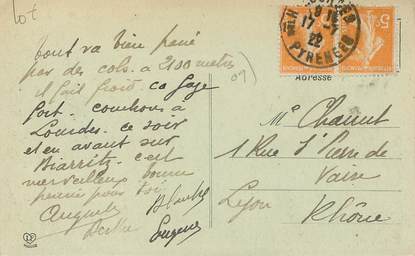 Lot
tout va bien passé
par des cols à 2100 metres
il fait froid. ca gaze
fort. couchons à
Lourdes. ce soir
et en avant sur
Biarritz. c'est
merveilleux bonne
pensée pour toi
Auguste
Berthe
Blanche
Eugene
09)
17-7
22
PYRENEES
5c
Adresse
Mr Chaunt
1 Rue St Pierre de
Vaise
Lyon
Rhône